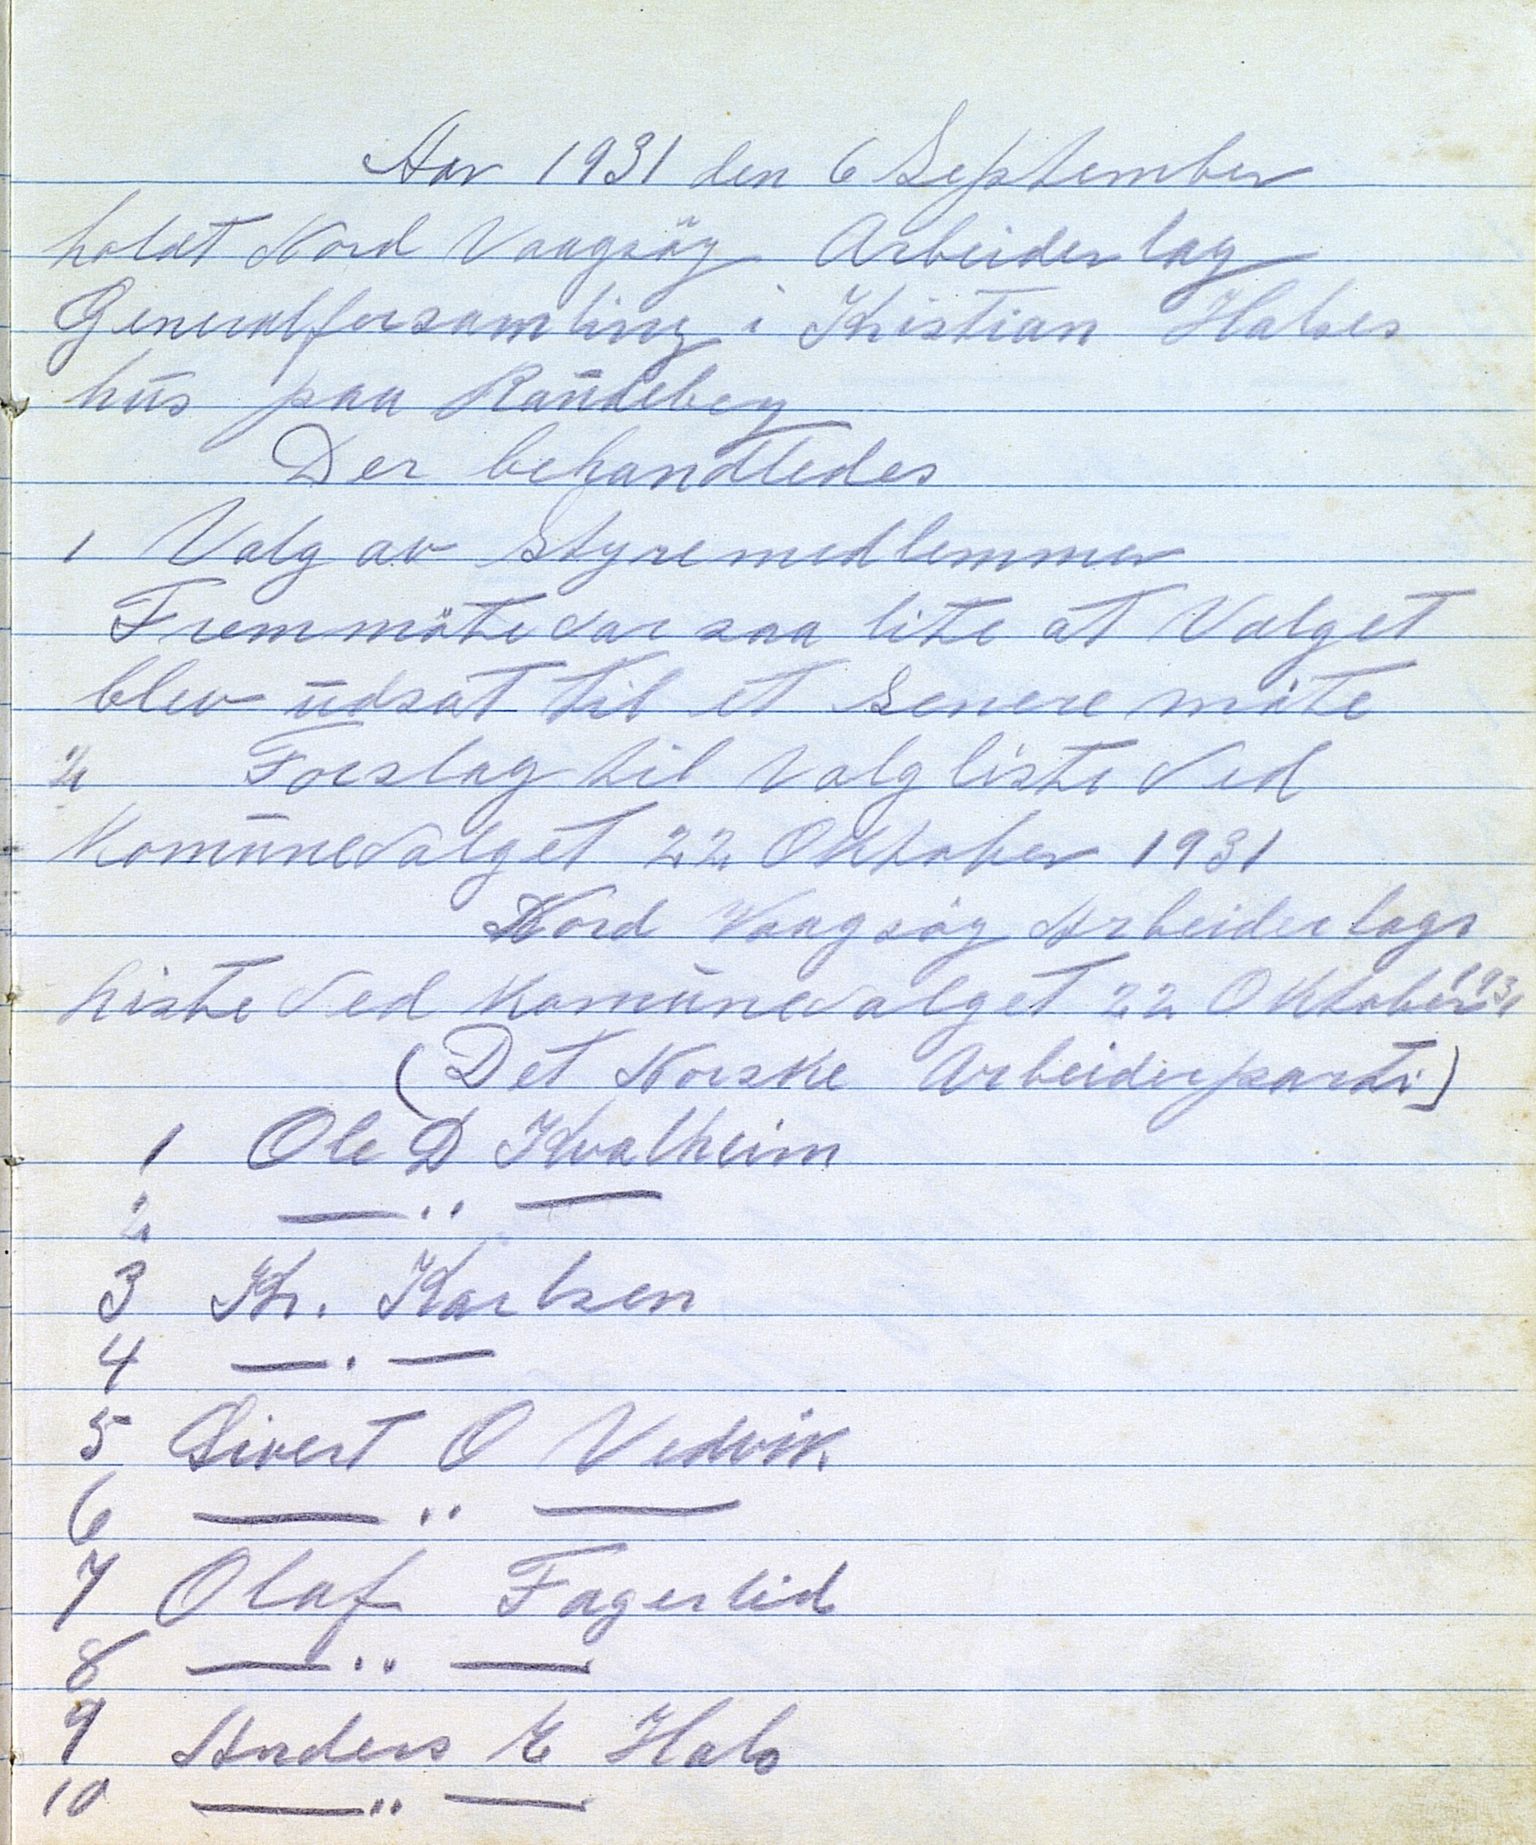 Aar 1931 den 6 September
holdt Nord Vaagsöy Arbeiderlag
Generalforsamling i Kristian Halses
hus paa Raudeberg
Der behandledes
1 Valg av Styremedlemmer
Fremmöte var saa lite at Valget
blev udsat til et senere möte
2 Forslag til Valgliste ved
Komunevalget 22 Oktober 1931
Nord Vaagsöy Arbeiderlags
liste ved Komunevalget 22 Oktober 1931
(Det Norske Arbeiderparti)
1 Ole D Kvalheim
2 — " —
3 Kr. Karlsen
4 — . —
5 Sivert O Vedvik
6 — " —
7 Olaf Fagerlid
8 — " —
9 Anders E Hals
10 — " —